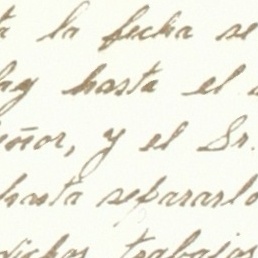 a la fecha se
hay hasta el
eñor, y el Sr.
hasta separarlo
dichos trabajos